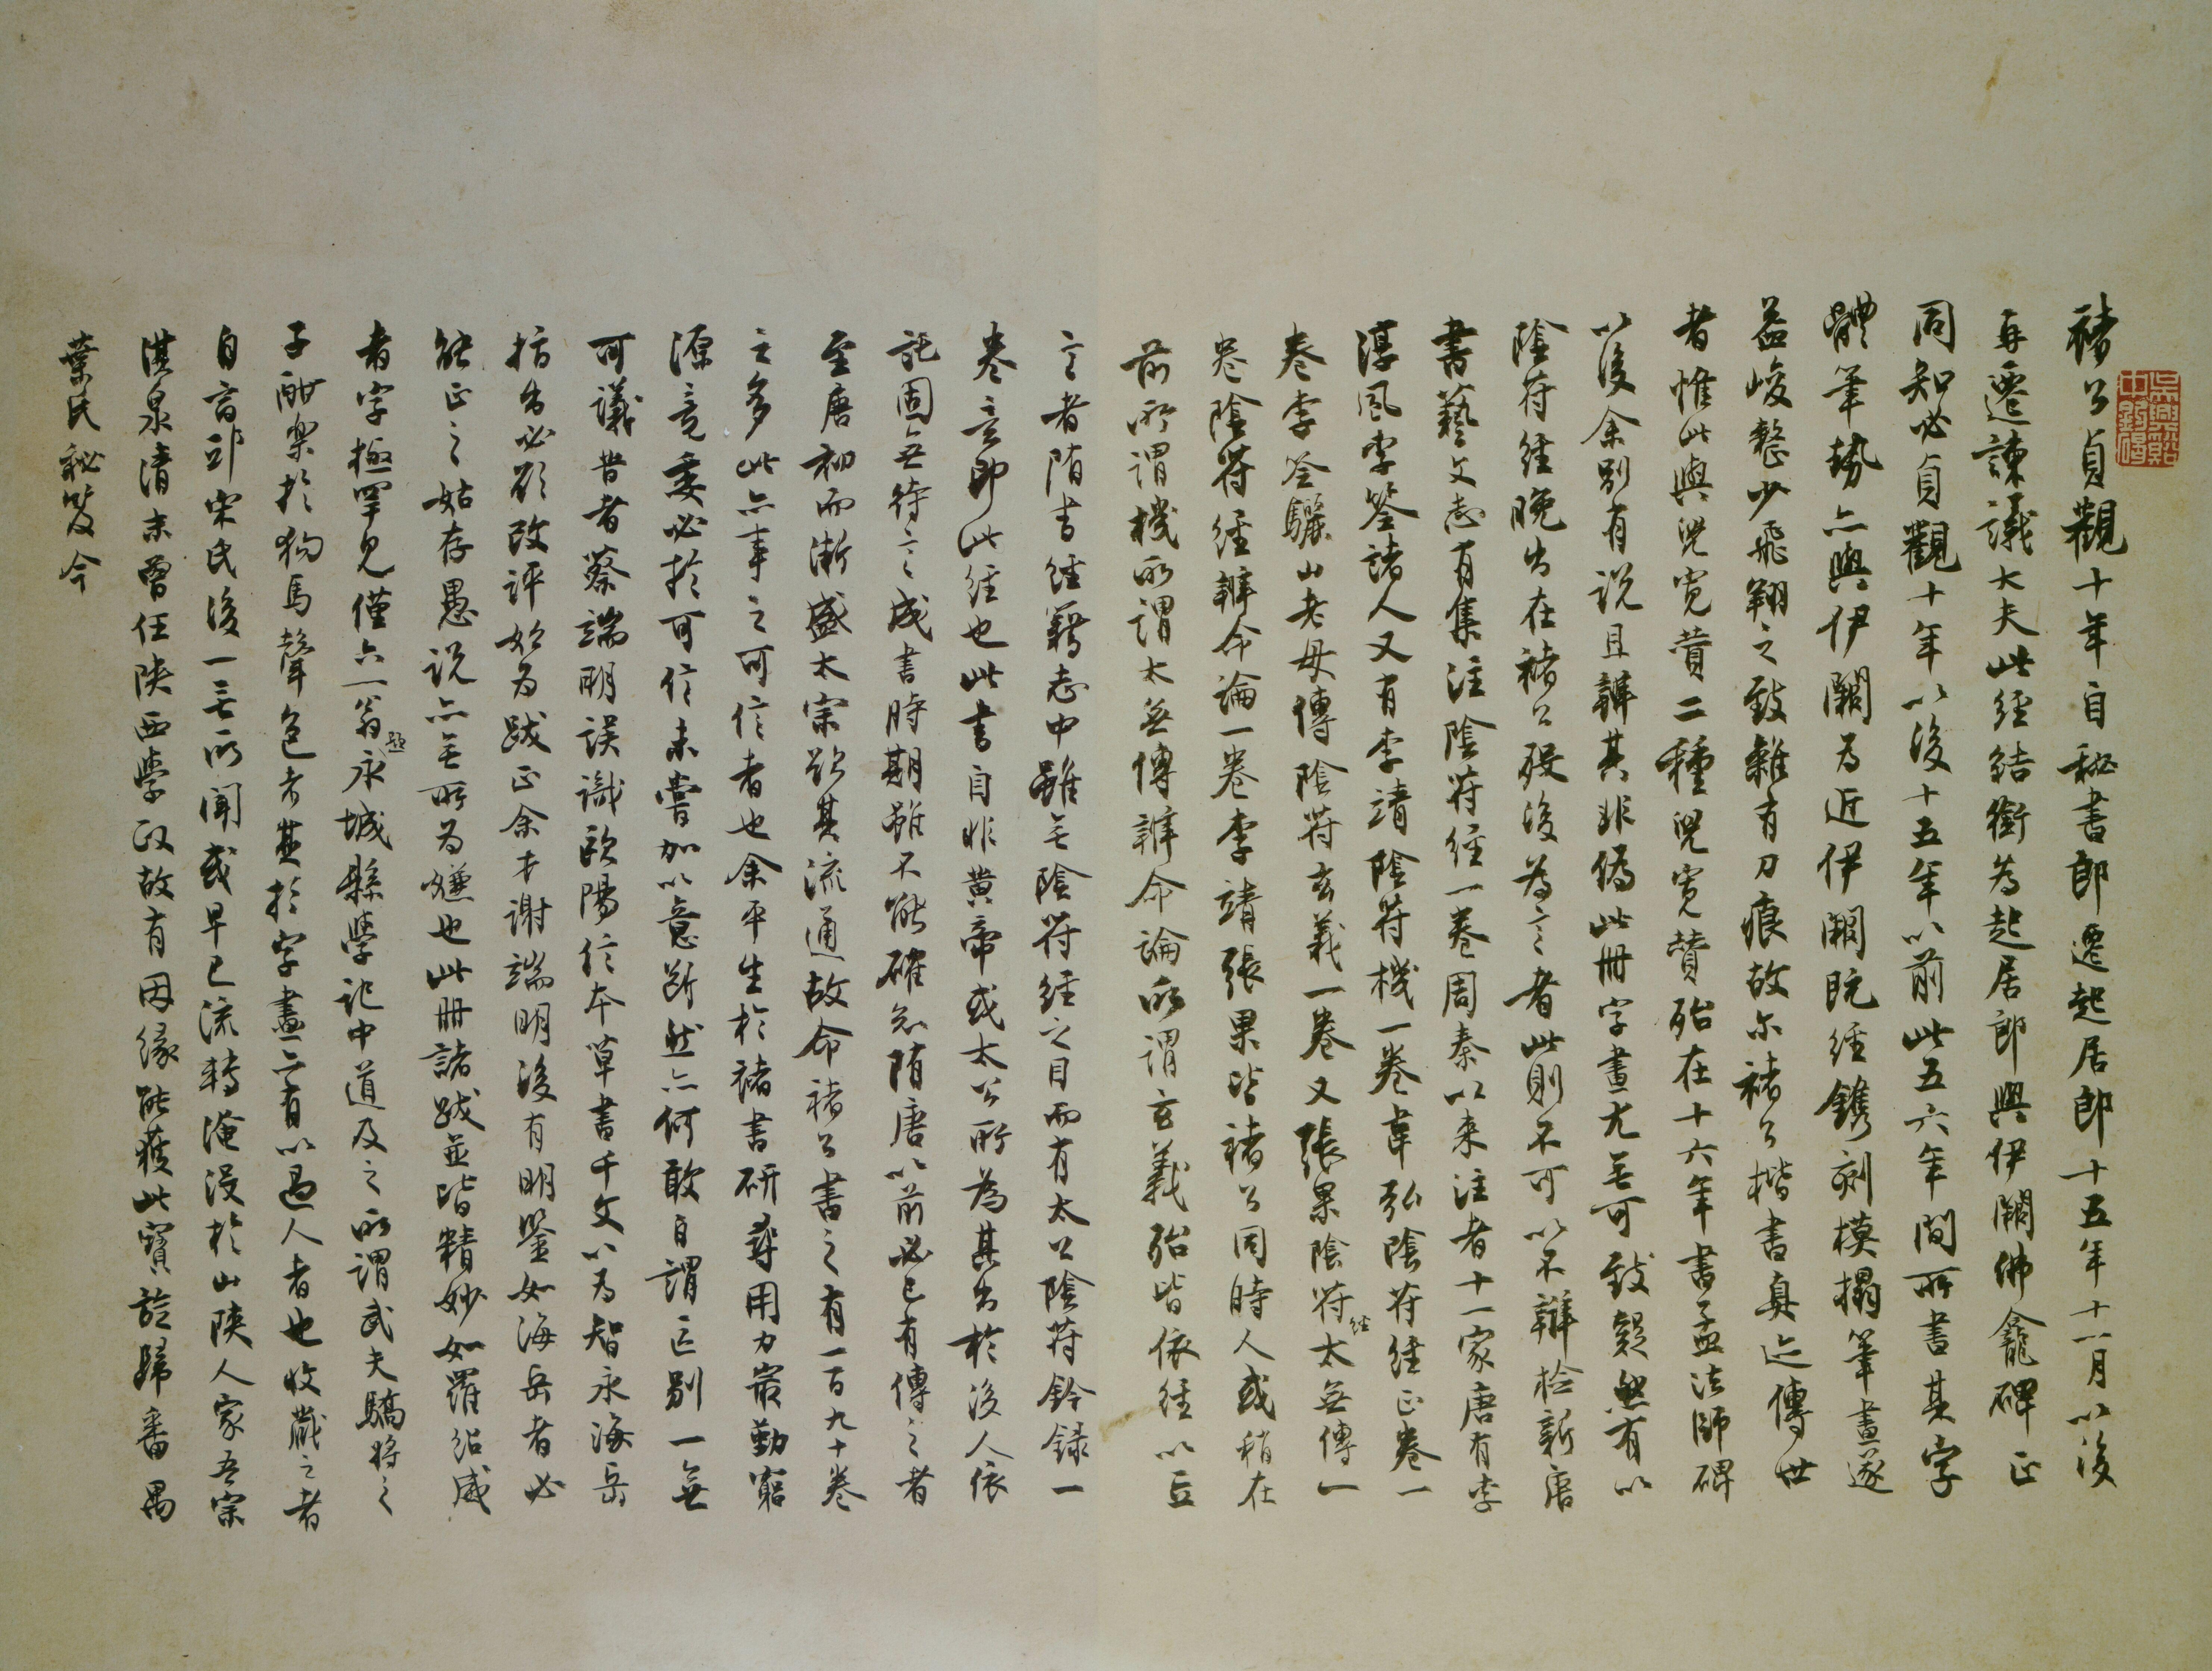 褚公貞觀十年自秘書郎遷起居郎十五年十一月以後
再遷諫議大夫此經結銜為起居郎與伊闕佛龕碑正
同知必貞觀十年以後十五年以前此五六年間所書其字
體筆勢亦與伊闕為近伊闕既經鐫刻模搨筆畫遂
益峻整少飛翔之致雜有刀痕故尒褚公楷書真迹傳世
者惟此與兒寬贊二種兒寬贊殆在十六年書孟法師碑
以後余別有説且辯其非偽此冊字畫尤无可致疑然有以
陰符經晚出在褚公殁後為言者此則不可以不辯檢新唐
書藝文志有集注陰符經一卷周秦以來注者十一家唐有李
淳風李筌諸人又有李靖陰符機一卷韋弘陰符經正卷一
卷李筌驪山老母傳陰符玄義一卷又張果陰符經太无傳一
卷陰符經辯命論一卷李靖張果皆褚公同時人或稍在
前所謂機所謂太无傳辯命論所謂玄義殆皆依經以立
言者隋書經籍志中雖无陰符經之目而有太公陰符鈐録一
卷意即此經也此書自非黄帝或太公所為其出於後人依
託固无待言之成書時期雖不能確知隋唐以前必已有傳之者
至唐初而漸盛太宗欲其流通故命褚公書之有一百九十卷
之多此亦事之可信者也余平生於褚書研尋用力㝡勤窮
源竟委必於可信未嘗加以意斷然亦何敢自謂區別一無
可議昔者蔡端明誤識歐陽信本草書千文以為智永海岳
指出必欲改評始為跋正余才謝端明後有明鑒如海岳者必
能正之姑存愚説亦无所為嫌也此冊諸跋並皆精妙如羅紹威
者字極罕見僅六一翁題永城縣學記中道及之所謂武夫驕將之
子酣樂於狗馬聲色者其於字畫亦有以過人者也收藏之者
自言卭宋氏後一无所聞或早已流轉淹没於山陝人家吾宗
淇泉清末曾任陝西學政故有因緣能獲此寶㫋歸番禺
葉氏秘笈今